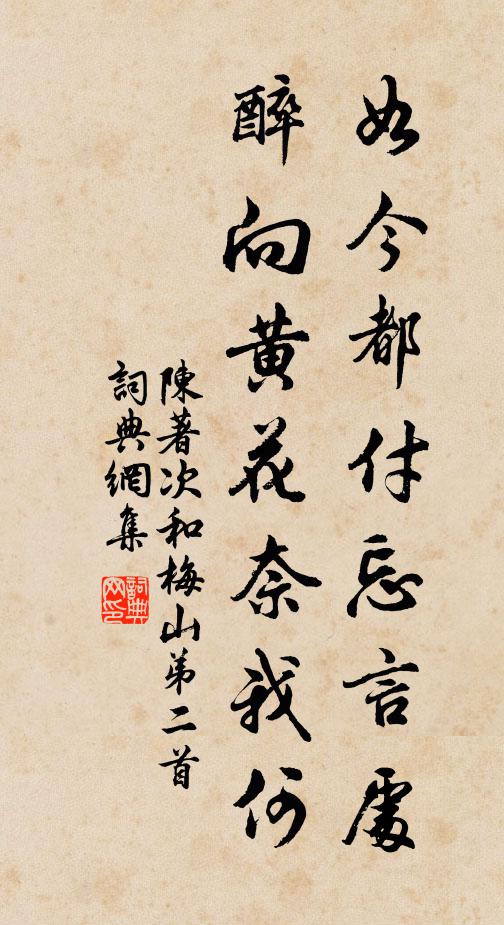 如今都付忘言處
醉向黄花奈我何
陳著次和梅山弟二首
詞典網集
詞典網印